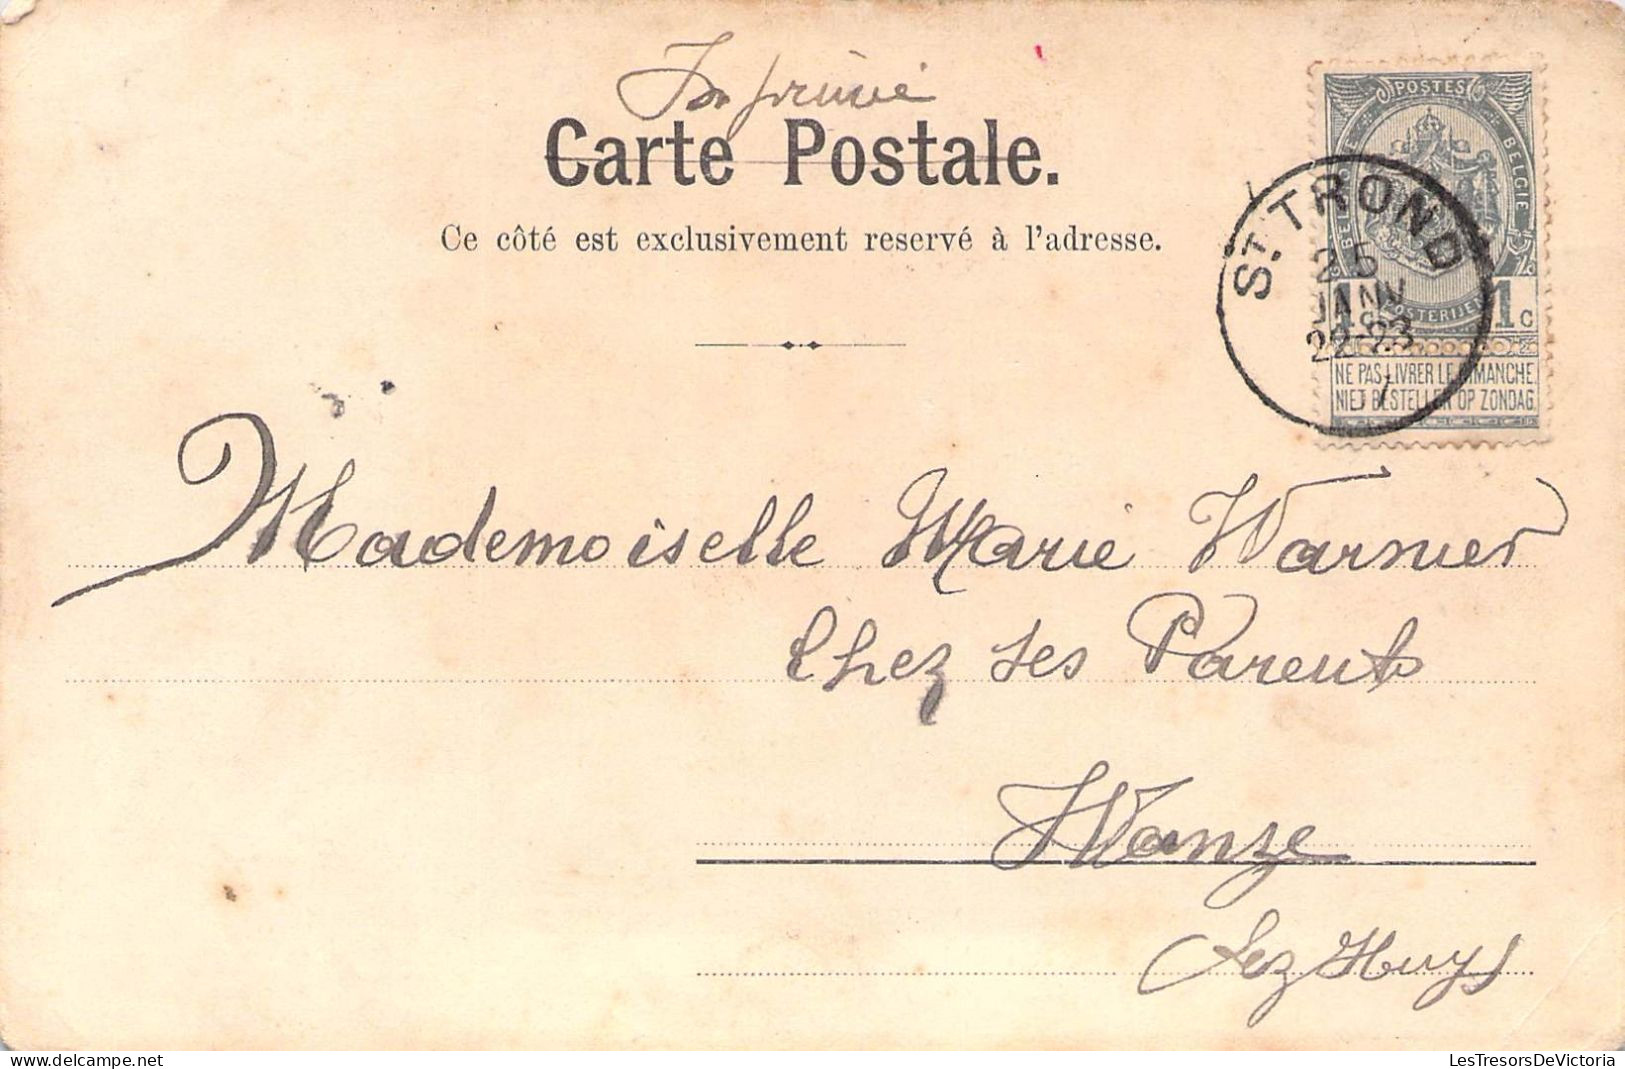 Imprimé
Carte Postale.
Ce côté est exclusivement reservé à l'adresse.
POSTES
BELGIQUE BELGIE
POSTERIJEN
1 1c
NE PAS LIVRER LE DIMANCHE.
NIET BESTELLEN OP ZONDAG
ST. TROND
25
JANV
22-23
Mademoiselle Marie Warnier
Chez ses Parents
Wanze
(Lez Huy)
LesTresorsDeVictoria